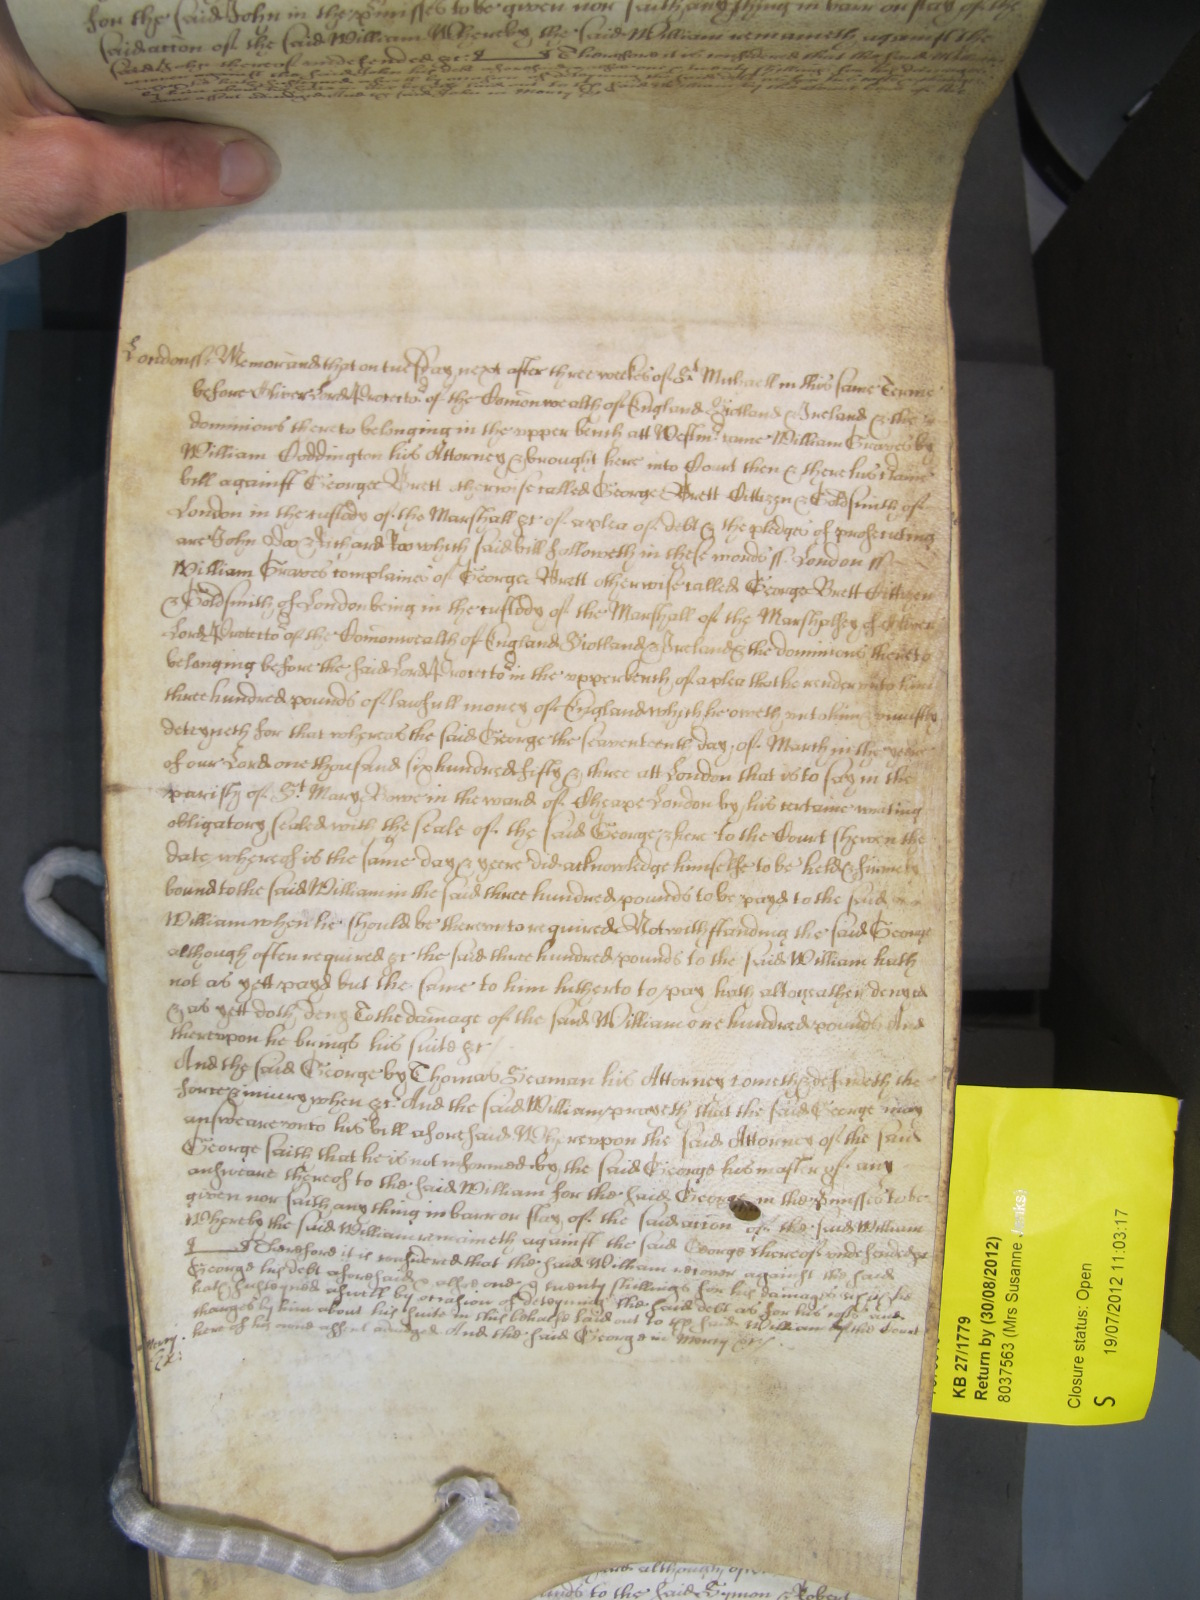 for the said John in the p'misses to be given nor saith any thing in barr or stay of the
said action of the said William Whereby the said William remaineth against the
said John thereof undefended &c Therefore it is considered that the said William
London ss. Memorand that on tuesday next after three weekes of St Michaell in this same Terme
before Oliver Lord Protector of the Comonwealth of England Scotland & Ireland & the
dominions thereto belonging in the upper bench att Westmr came William Graves by
William Coddington his Attorney & brought here into Court then & there his certaine
bill against George Brett otherwise called George Brett Cittizen & Goldsmith of
London in the custody of the Marshall &c of a plea of debt & the pledges of prosecuting
are John Doo & Richard Roo which said bill followeth in these words ss. London ss
William Graves complaines of George Brett otherwise called George Brett Cittizen
& Goldsmith of London being in the custody of the Marshall of the Marshalsey of Oliver
Lord Protector of the Comonwealth of England Scotland & Ireland & the dominions thereto
belonging before the said Lord Protector in the upper bench of a plea that he render unto him
three hundred pounds of lawfull money of England which he oweth unto him & uniustly
deteyneth for that whereas the said George the seaventeenth day of March in the yeere
of our Lord one thousand six hundred fifty & three att London that is to say in the
parish of St Mary Bowe in the ward of Cheape London by his certaine writing
obligatory sealed with the seale of the said George & here to the Court shewen the
date whereof is the same day & yeere did acknowledge himselfe to be held & firmely
bound to the said William in the said three hundred pounds to be payd to the said
William when he should be thereunto required Notwithstanding the said George
although often required &c the said three hundred pounds to the said William hath
not as yett payd but the same to him hitherto to pay hath altogeather denyed
& as yett doth deny To the damage of the said William one hundred pounds And
thereupon he brings his suite &c
And the said George by Thomas Seaman his Attorney cometh & defendeth the
force & iniury when &c And the said William prayeth that the said George may
answeare unto his bill aforesaid Whereupon the said Attorney of the said
George saith that he is not informed by the said George his master of any
answeare thereof to the said William for the said George in the p'misses to be
given nor saith any thing in barr or stay of the said action of the said William
Whereby the said William remaineth against the said George thereof undefended &c
Therefore it is considered that the said William recover against the said
George his debt aforesaid & alsoe one & twenty shillings for his damages which he
hath susteyned aswell by occasion of deteyning the said debt as for his costs and
charges by him about his suite in this behalfe laid out to the said William by the Court
here of his owne assent adiudged And the said George in mercy &c
Mercy
&c
although
unds to the said Symon & Robert
KB 27/1779
Return by (30/08/2012)
8037563 (Mrs Susanne
Closure status: Open
S 19/07/2012 11:03:17